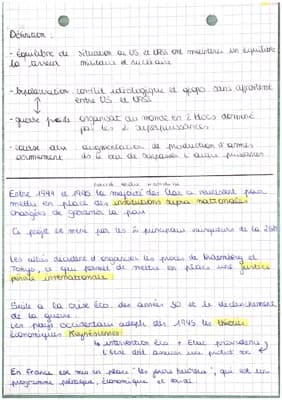 Définition :
- équilibre de la terreur
situation où US et URSS ont maintenu un équilibre militaire et nucléaire
- bipolarisation
conflit idéologique et géopo. sans affrontement entre US et URSS
- guerre froide
organisat° du monde en 2 blocs dominé par les 2 superpuissances
- course aux armements
augmentation de production d'armes dans le but de surpasser l'autre puissance
Entre 1944 et 1946 la majorité des États se réunissent pour mettre en place des institutions supra nationales chargées de garantir la paix
Ce projet est mené par les principaux vainqueurs de la 2GM
Les alliés décident d'organiser les procès de Nuremberg et Tokyo, ce qui permet de mettre en place une justice pénale internationale.
Suite à la crise éco. des années 30 et le déclenchement de la guerre.
Les pays occidentaux adopte dès 1945 les théories économiques Keynésiennes :
↳ intervention État + État providence
L'État doit assurer une protect° soc
En France est mis en place "les jours heureux", qui est un programme politique, économique et social.